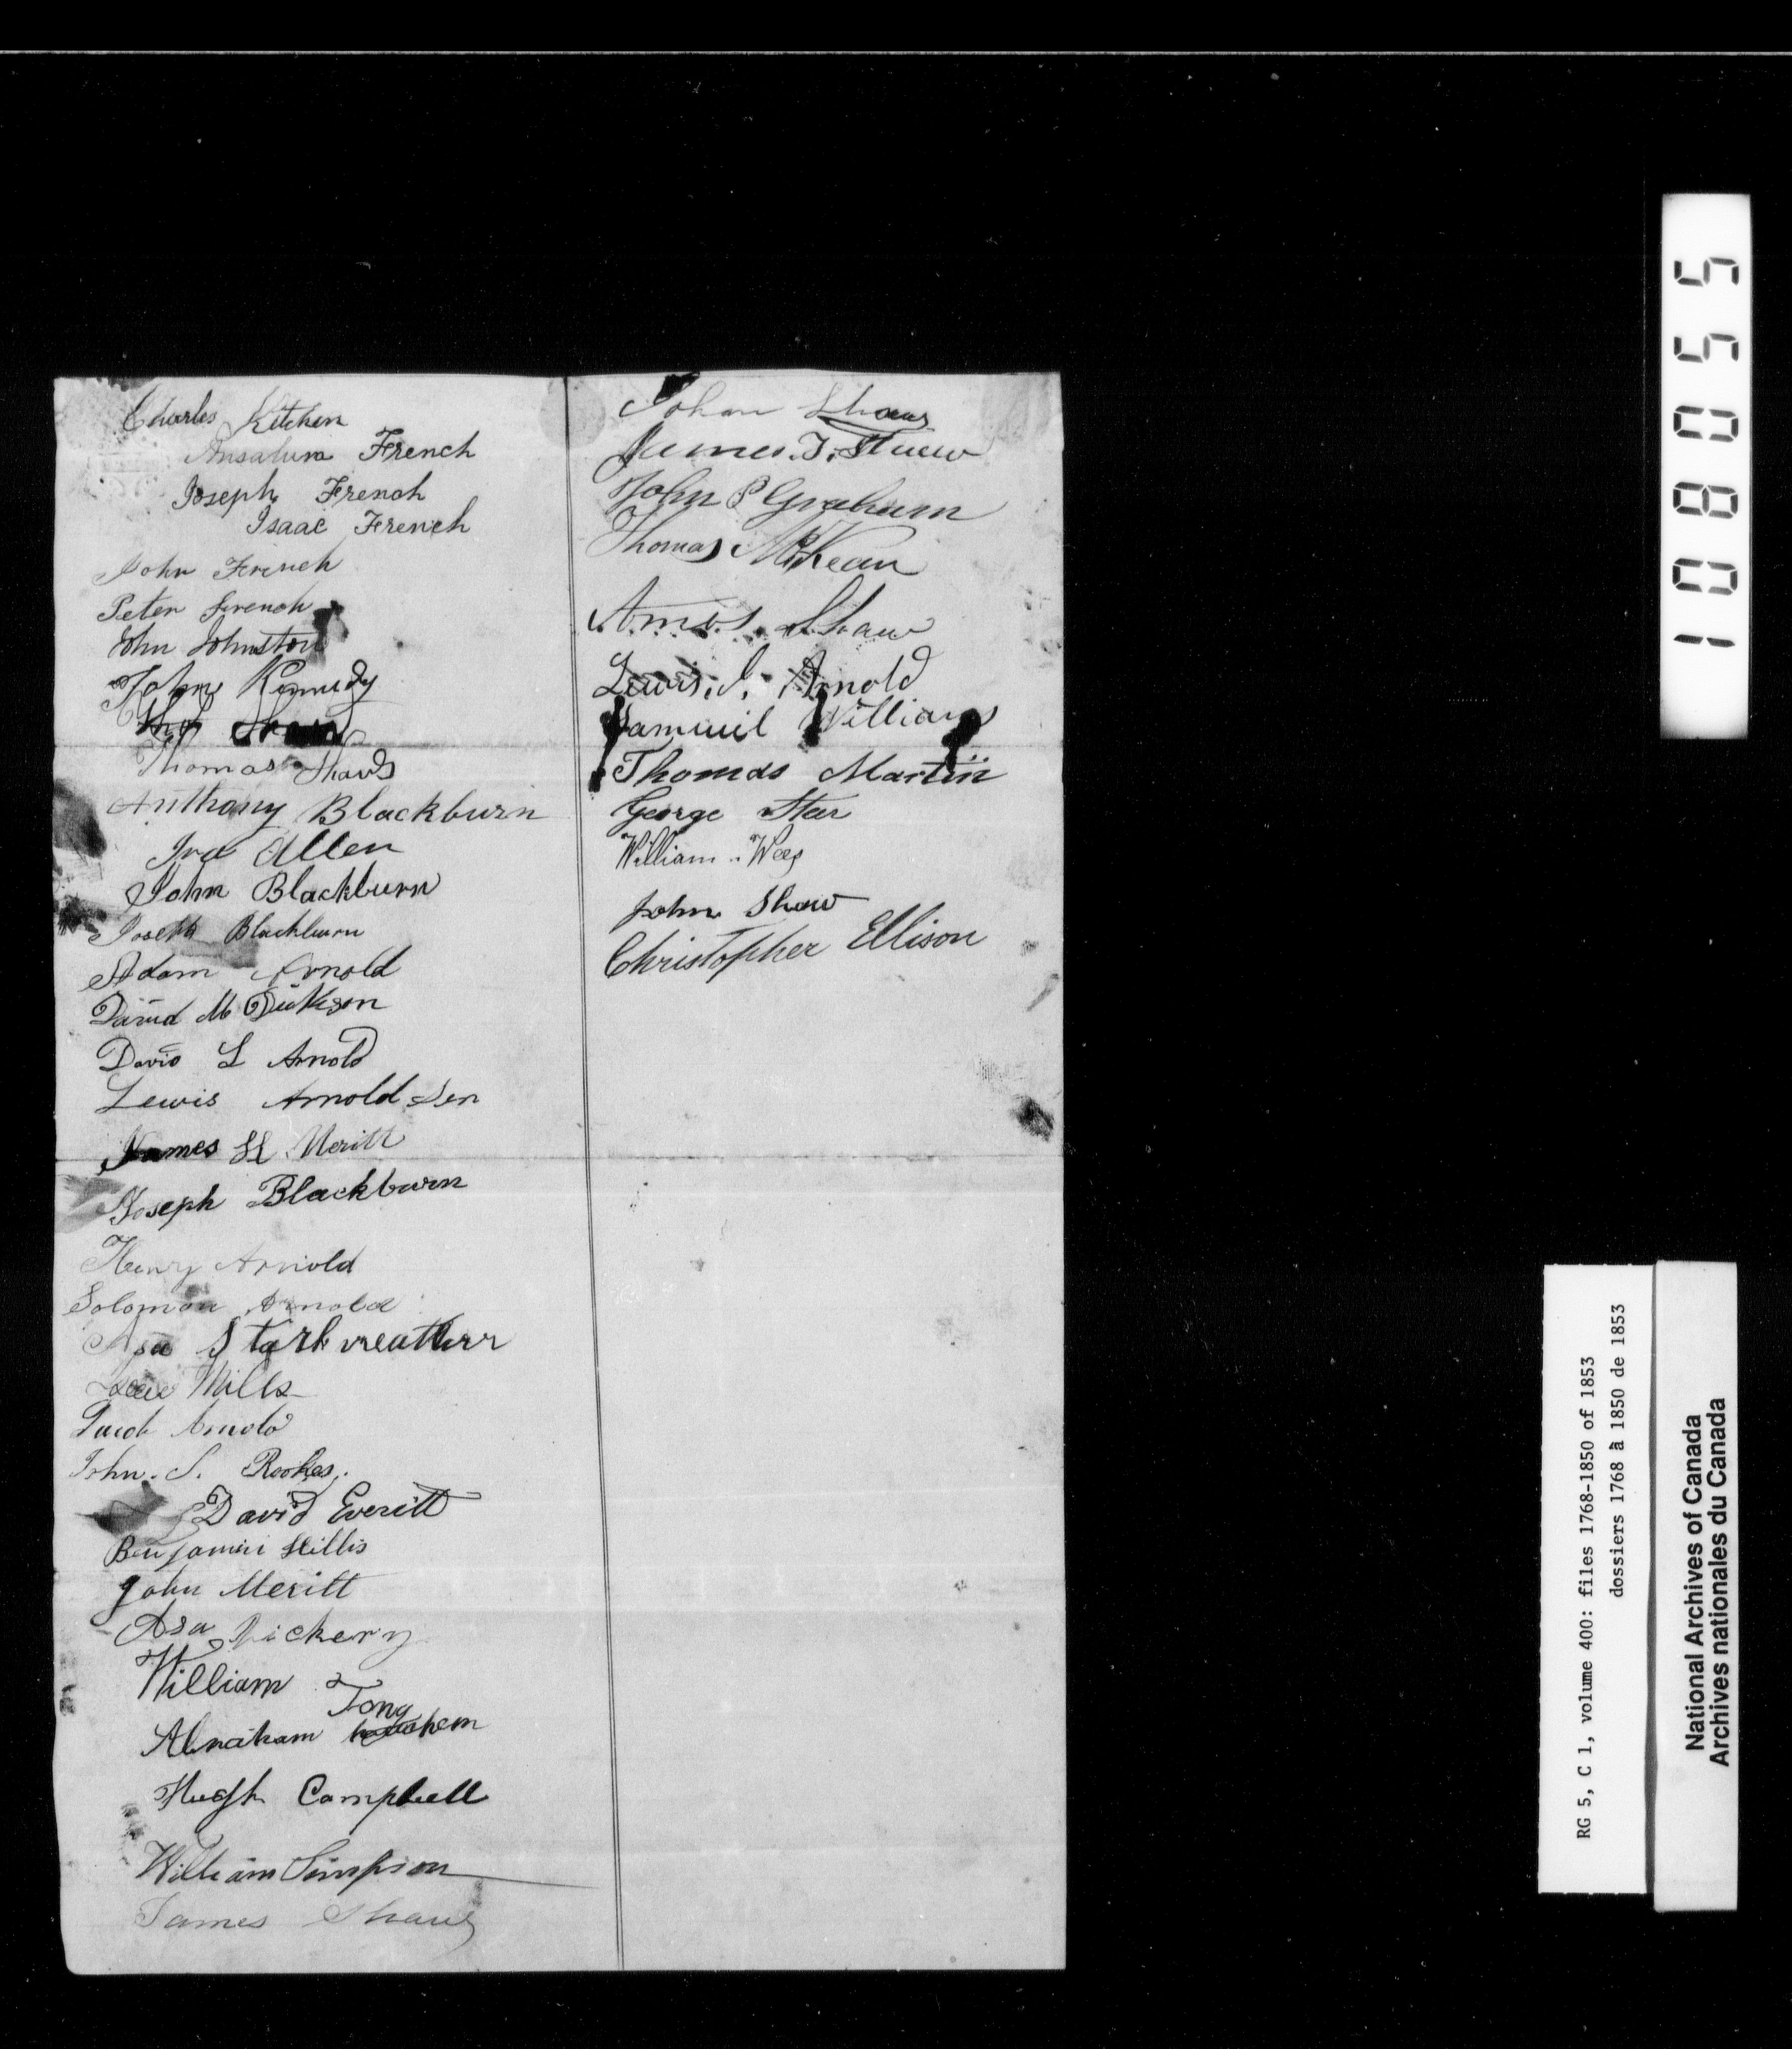 Charles Kitchen
French
Joseph French
Isaac French
John French
Peter French
John Johnston
John Kennedy
Thomas Shaw
Anthony Blackburn
Ira Allen
John Blackburn
Joseph Blackburn
Adam Arnold
David M Dickson
David L Arnold
Lewis Arnold Sen
James H Meritt
Joseph Blackburn
Henry Arnold
Solomon Arnold
Asa Starkweather
Mills
Jacob Arnold
John. S. Rookes
David Everitt
Benjamin Hillis
John Meritt
Asa Vickery
William Tong
Abraham
Hugh Campbell
William Simpson
James Shaw
John Shaw
James. T. Shaw
John P Graham
Thomas McKean
Amos Shaw
Lewis. J. Arnold
Samuuil William
Thomas Martin
George Star
William Wees
John Shaw
Christopher Ellison
108055
RG 5, C 1, volume 400: files 1768-1850 of 1853
dossiers 1768 à 1850 de 1853
National Archives of Canada
Archives nationales du Canada